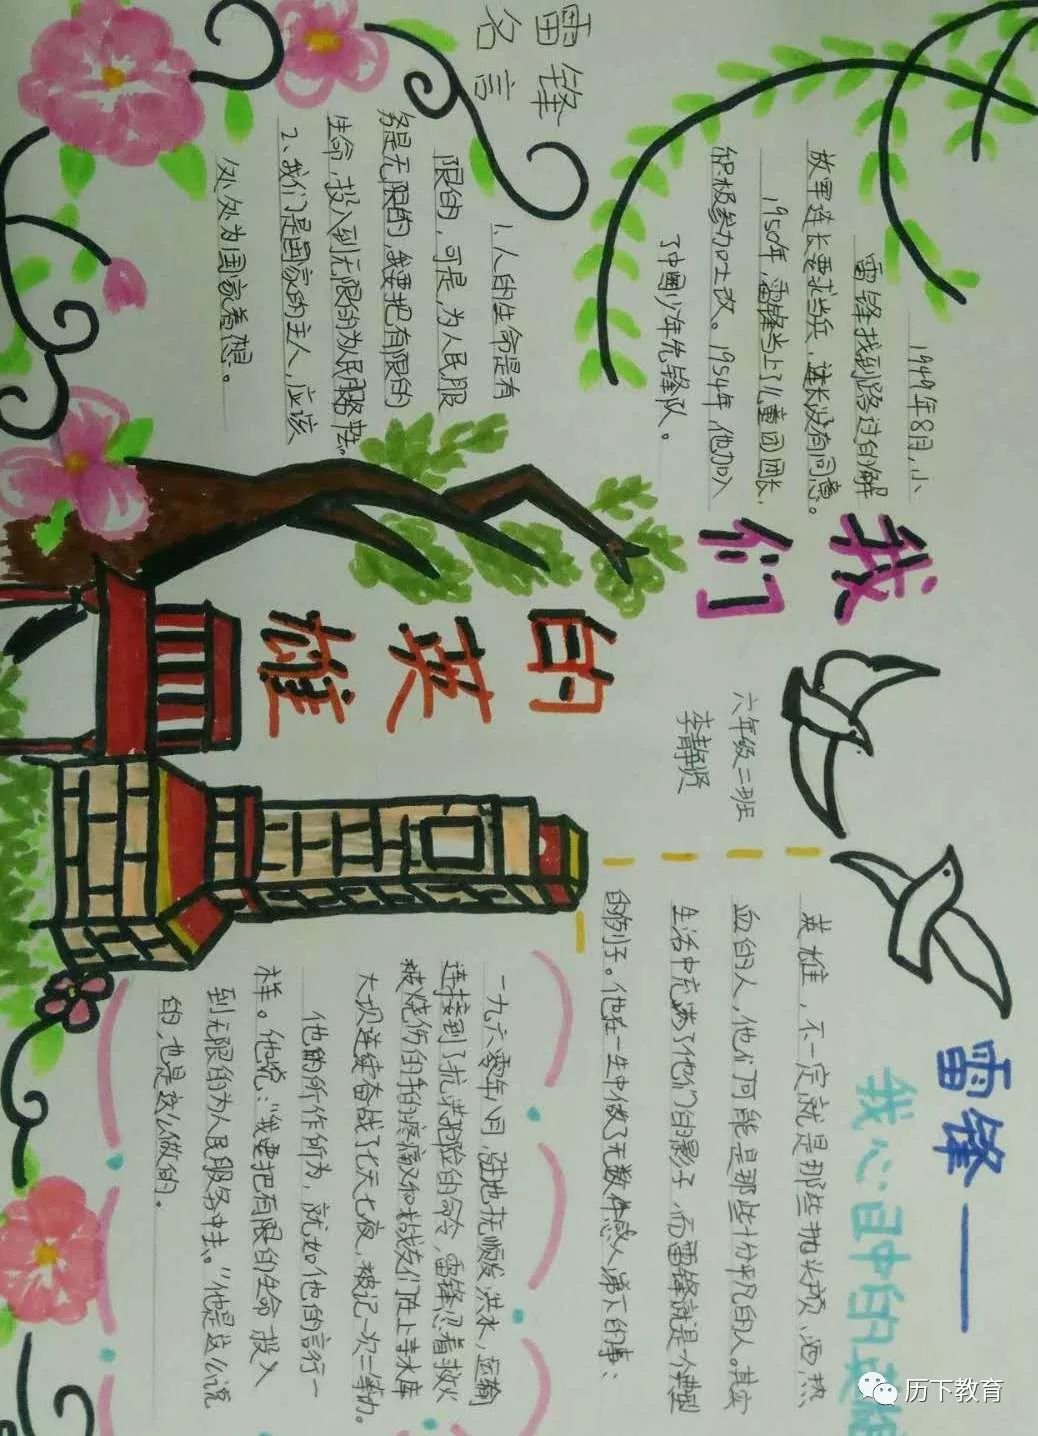 我们
的英雄
六年级二班
李静贤
1949年8月,小
雷锋找到路过的解
放军连长要求当兵,连长没有同意。
1950年,雷锋当上了儿童团团长,
积极参加土改。1954年,他加入
了中国少年先锋队。
雷锋
名言
1、人的生命是有
限的,可是,为人民服
务是无限的,我要把有限的
生命,投入到无限的为人民服务中去。
2、我们是国家的主人,应该
处处为国家着想。
雷锋——
我心目中的英雄
英雄,不一定就是那些抛头颅、洒热
血的人,他们可能是那些十分平凡的人。其实
生活中充满了他们的影子,而雷锋就是个典型
的例子。他在一生中做了无数件感人涕下的事:
一九六零年八月,驻地抚顺发洪水,运输
连接到了抗洪抢险的命令,雷锋忍着救火
被烧伤的手的疼痛又和战友们在上寺水库
大坝连续奋战了七天七夜,被记一次二等功。
他的所作所为,就如他的言行一
样。他说:“我要把有限的生命投入
到无限的为人民服务中去。”他是这么说
的,也是这么做的。
历下教育